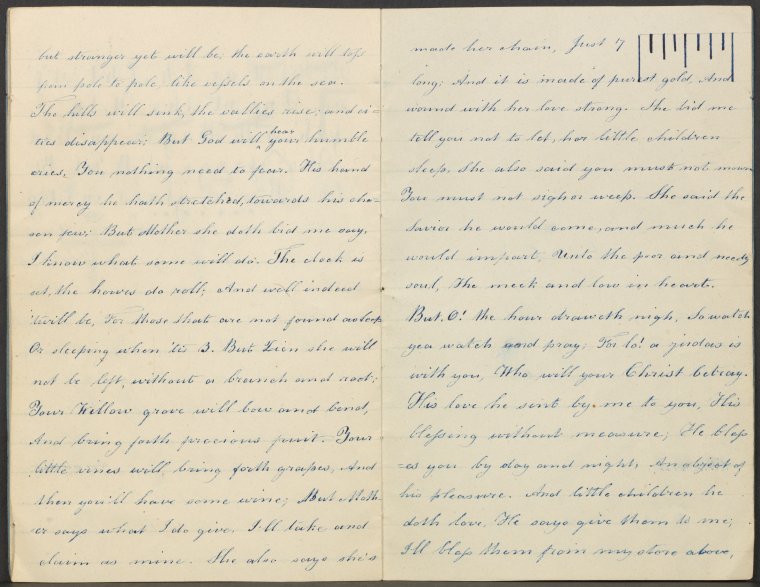 but stranger yet will be, the earth will toss
from pole to pole, like vessels on the sea.
The hills will sink, the vallies rise; and ci-
ties disappear; But God will hear your humble
cries. You nothing need to fear. His hand
of mercy he hath stretched, towards his cho-
sen few: But Mother she doth bid me say,
I know what some will do. The clock is
set, the howrs do roll; And well indeed
'twill be, For those that are not found asleep
Or sleeping when 'tis 3. But Zien she will
not be left, without a branch and root;
Your Willow grove will bow and bend,
And bring forth precious fruit. Your
little vines will, bring forth grapes, And
then you'll have some wine; But Moth-
er says what I do give. I'll take and
claim as mine. She also says she's
made her chain, Just 7
long: And it is made of purest gold, And
wound with her love strong. She bid me
tell you not to let, her little children
sleep. She also said you must not mourn
You must not sigh or weep. She said the
Savior he would come, and much he
would impart, Unto the poor and needy
soul, The meek and low in heart.
But, O! the hour draweth nigh, So watch
yea watch and pray; For lo! a judas is
with you, Who will your Christ betray.
His love he sint by me to you, His
blessing without measure; He bless
=es you by day and night, An object of
his pleasure. And little children he
doth love, He says give them to me;
I'll bless them from my store above,